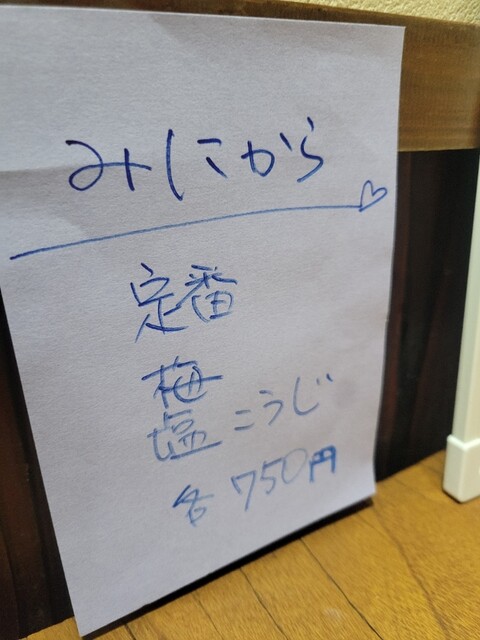 みにから
定番
梅
塩こうじ
各750円